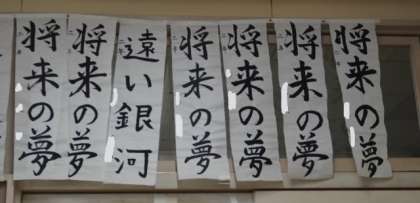 将来の夢
将来の夢
遠い銀河
将来の夢
将来の夢
将来の夢
将来の夢